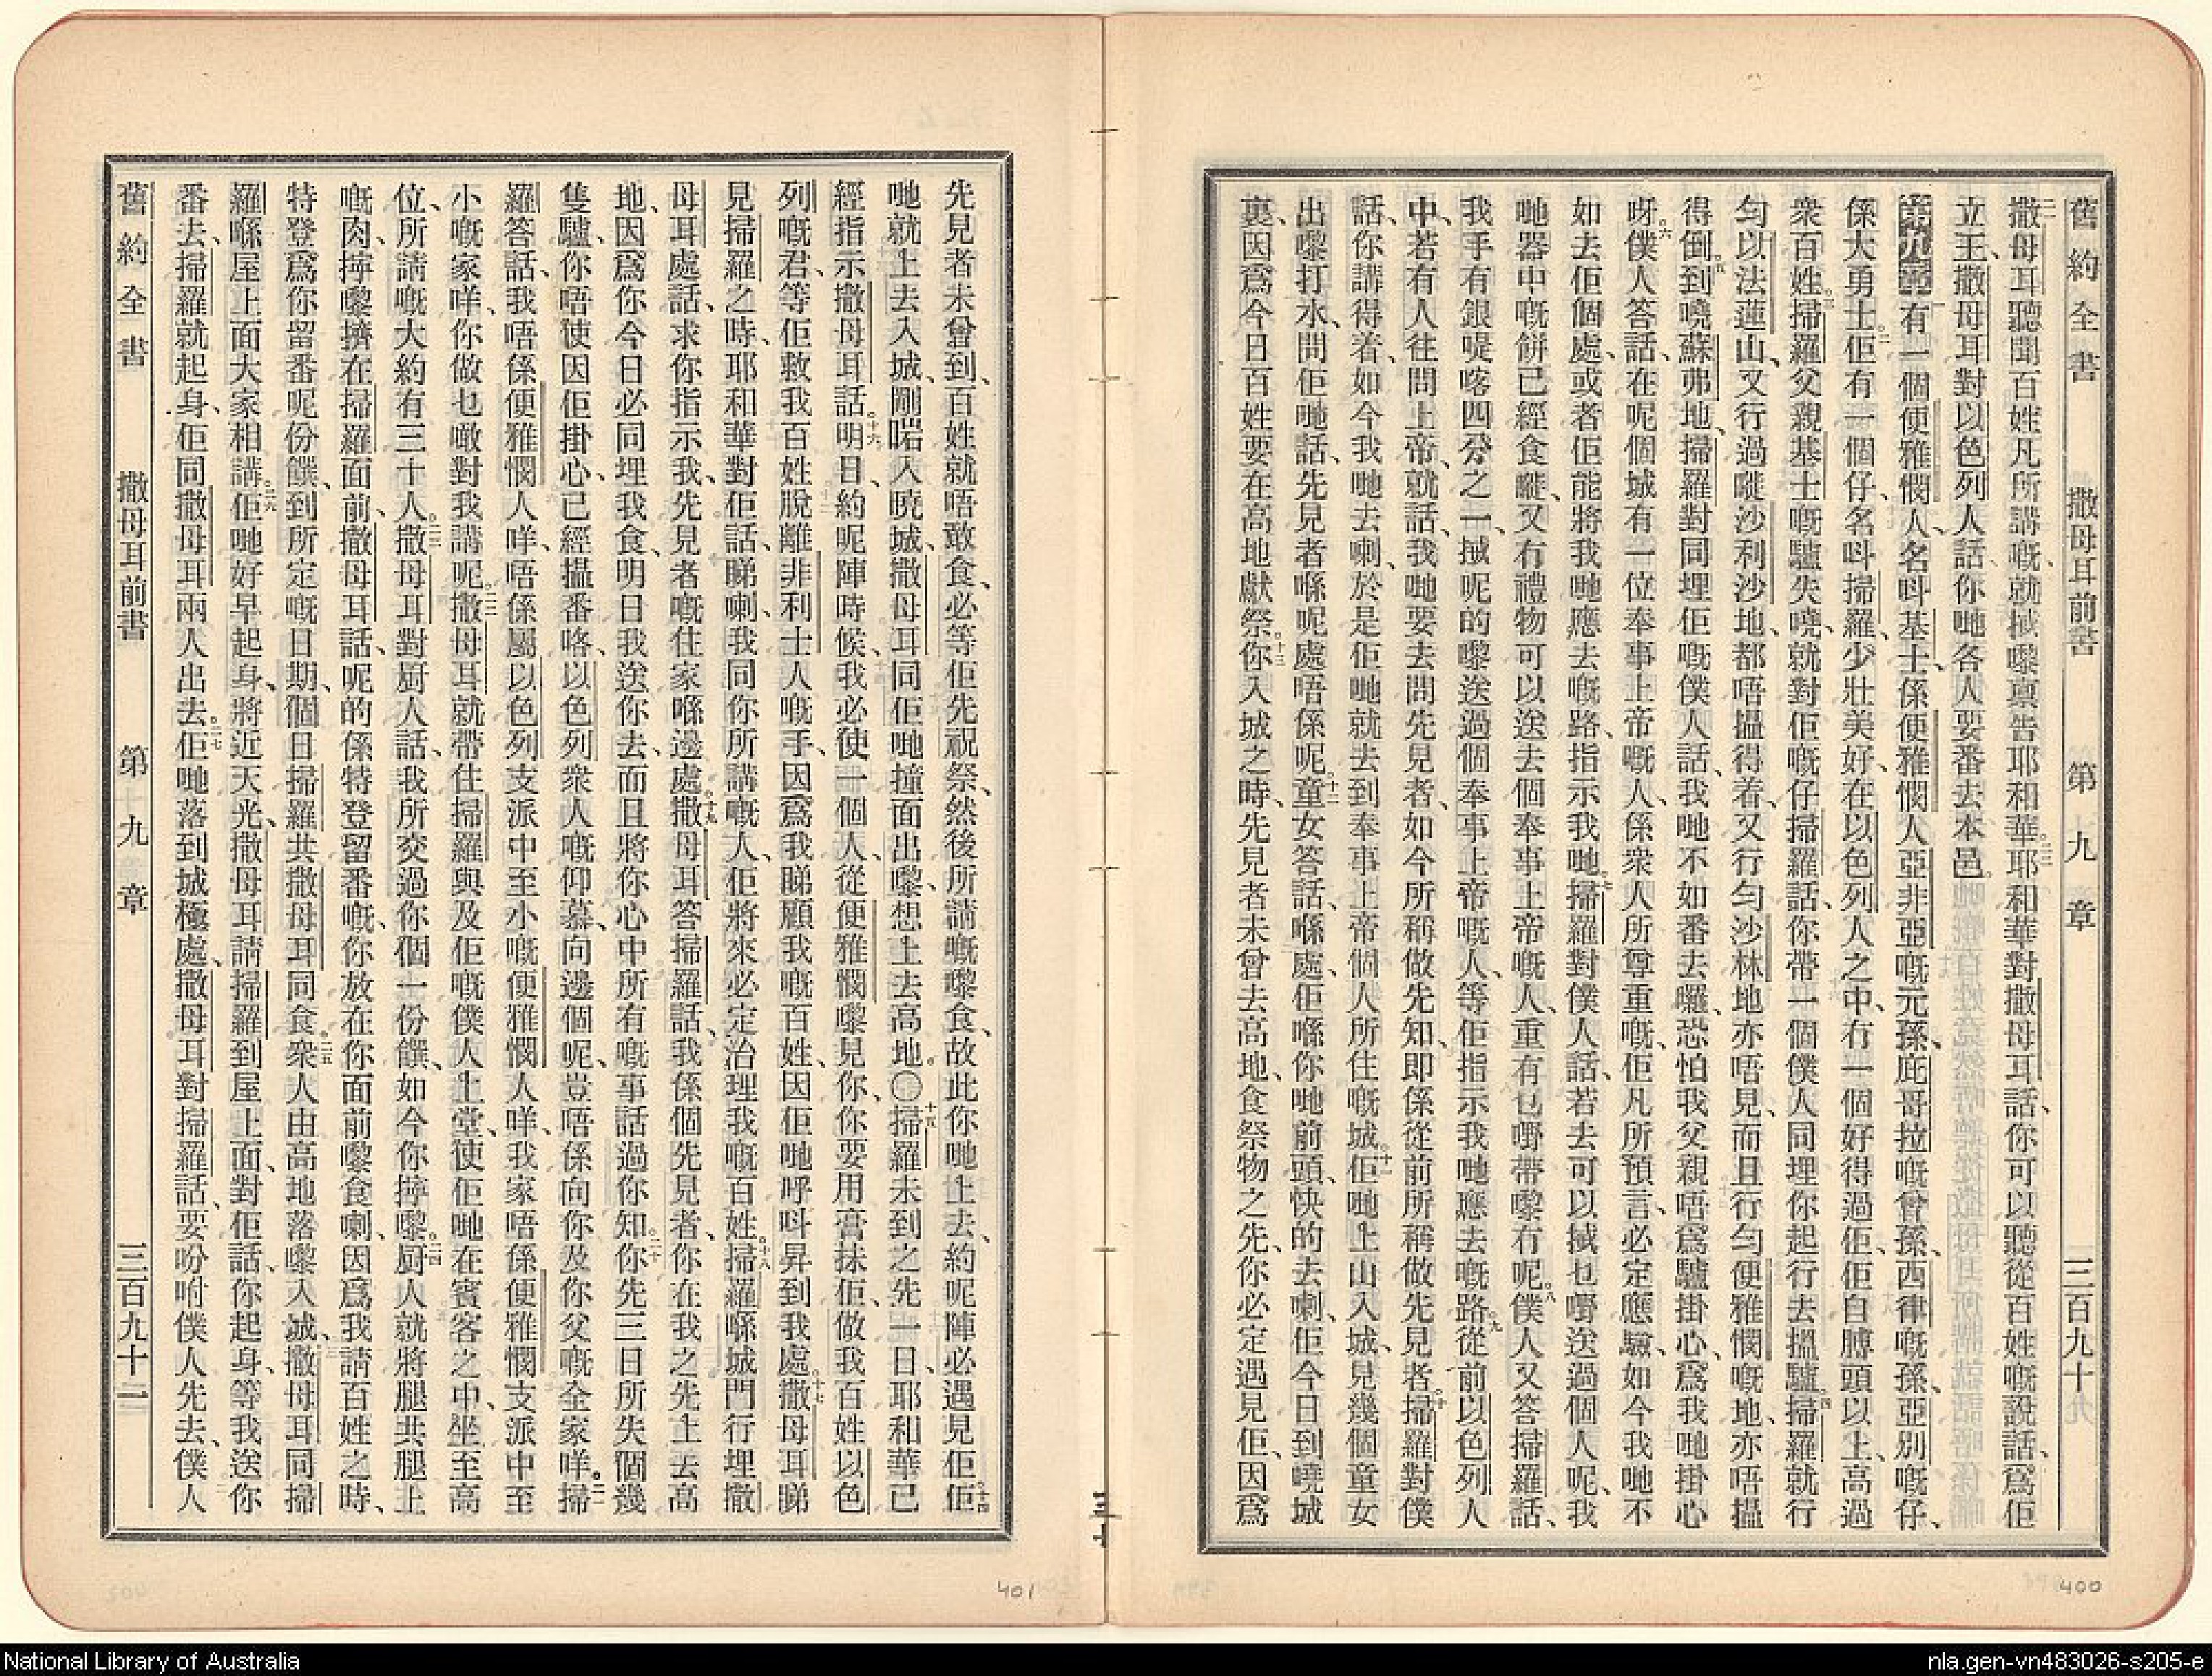 舊約全書　撒母耳前書　第九章　三百九十
撒母耳聽聞百姓凡所講嘅、就𢫏嚟禀告耶和華。二二耶和華對撒母耳話、你可以聽從百姓嘅說話、爲佢
立王、撒母耳對以色列人話、你哋各人要番去本邑。
第九章 一有一個便雅憫人、名呌基士、係便雅憫人亞非亞嘅元孫、庇哥拉嘅曾孫、西律嘅孫、亞別嘅仔、
係大勇士。二佢有一個仔、名呌掃羅、少壯美好、在以色列人之中、冇一個好得過佢、佢自膊頭以上、高過
衆百姓。三掃羅父親基士嘅驢失曉、就對佢嘅仔掃羅話、你帶一個僕人同埋你起行去搵驢。四掃羅就行
匀以法蓮山、又行過嘥沙利沙地、都唔搵得着、又行匀沙林地亦唔見、而且行匀便雅憫嘅地、亦唔搵
得倒。五到曉蘇弗地、掃羅對同埋佢嘅僕人話、我哋不如番去囉、恐怕我父親唔爲驢掛心、爲我哋掛心
呀。六僕人答話、在呢個城有一位奉事上帝嘅人、係衆人所尊重嘅、佢凡所預言、必定應驗、如今我哋不
如去佢個處、或者佢能將我哋應去嘅路、指示我哋。七掃羅對僕人話、若去可以𢫏乜嘢送過個人呢、我
哋器中嘅餅已經食嘥、又冇禮物可以送去個奉事上帝嘅人、重有乜嘢帶嚟冇呢。八僕人又答掃羅話、
我手有銀㖷喀四分之一、𢫏呢的嚟送過個奉事上帝嘅人、等佢指示我哋應去嘅路。九從前以色列人
中、若有人往問上帝、就話、我哋要去問先見者、如今所稱做先知、即係從前所稱做先見者。十掃羅對僕
話、你講得着、如今我哋去喇、於是佢哋就去到奉事上帝個人所住嘅城。十一佢哋上山入城、見幾個童女
出嚟打水、問佢哋話、先見者喺呢處唔係呢。十二童女答話、喺處、佢喺你哋前頭、快的去喇、佢今日到曉城
裏、因爲今日百姓要在高地獻祭。十三你入城之時、先見者未曾去高地、食祭物之先、你必定遇見佢、因爲
先見者未曾到、百姓就唔敢食、必等佢先祝祭、然後所請嘅嚟食、故此你哋上去、約呢陣必遇見佢。十四佢
哋就上去入城、剛啱入曉城、撒母耳同佢哋撞面出嚟、想上去高地。〇十五掃羅未到之先一日、耶和華已
經指示撒母耳話。十六明日約呢陣時候、我必使一個人、從便雅憫嚟見你、你要用膏抹佢、做我百姓以色
列嘅君、等佢救我百姓脫離非利士人嘅手、因爲我睇顧我嘅百姓、因佢哋呼呌昇到我處。十七撒母耳睇
見掃羅之時、耶和華對佢話、睇喇、我同你所講嘅人、佢將來必定治理我嘅百姓。十八掃羅喺城門行埋撒
母耳處話、求你指示我、先見者嘅住家喺邊處。十九撒母耳答掃羅話、我係個先見者、你在我之先上去高
地、因爲你今日必同埋我食、明日我送你去、而且將你心中所有嘅事話過你知。二十你先三日所失個幾
隻驢、你唔使因佢掛心、已經搵番咯、以色列衆人嘅仰慕、向邊個呢、豈唔係向你及你父嘅全家咩。二一掃
羅答話、我唔係便雅憫人咩、唔係屬以色列支派中至小嘅便雅憫人咩、我家唔係便雅憫支派中至
小嘅家咩、你做乜噉對我講呢。二二撒母耳就帶住掃羅與及佢嘅僕人上堂、使佢哋在賓客之中、坐至高
位、所請嘅大約有三十人。二三撒母耳對厨人話、我所交過你個一份饌、如今你擰嚟。二四厨人就將腿共腿上
嘅肉、擰嚟擠在掃羅面前、撒母耳話、呢的係特登留番嘅、你放在你面前嚟食喇、因爲我請百姓之時、
特登爲你留番呢份饌、到所定嘅日期、個日掃羅共撒母耳同食。二五衆人由高地落嚟入城、撒母耳同掃
羅喺屋上面大家相講。二六佢哋好早起身、將近天光、撒母耳請掃羅到屋上面、對佢話、你起身、等我送你
番去、掃羅就起身、佢同撒母耳兩人出去。二七佢哋落到城極處、撒母耳對掃羅話、要吩咐僕人先去、僕人
舊約全書　撒母耳前書　第九章　三百九十二
三十
401
400
National Library of Australia
nla.gen-vn483026-s205-e